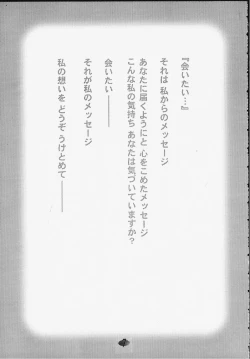 『会いたい…』
それは 私からのメッセージ
あなたに届くようにと 心をこめたメッセージ
こんな私の気持ち あなたは気づいていますか？
会いたい――――
それが私のメッセージ
私の想いを どうぞ うけとめて――――